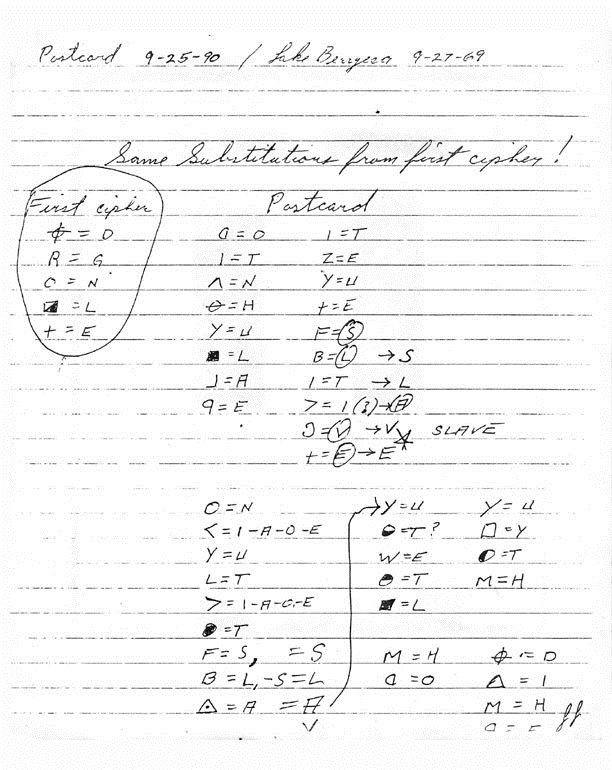 Postcard 9-25-90 / Lake Berryesa 9-27-69
Same Substitutions from first cipher!
First cipher
ϕ = D
R = G
O = N
◪ = L
+ = E
Postcard
O = O
I = T
Λ = N
θ = H
Y = U
■ = L
J = A
9 = E
I = T
Z = E
Y = U
+ = E
F = S
B = L → S
I = T → L
> = I (?) → A
Ɔ = V → V SLAVE
+ = E → E
O = N
< = I-A-O-E
Y = U
L = T
> = I-A-O-E
= T
F = S, = S
B = L, -S = L
◬ = A = A
V
→ Y = U
= T?
W = E
= T
◪ = L
M = H
= O
Y = U
□ = Y
◐ = T
M = H
ϕ = D
Δ = I
M = H
9 = E